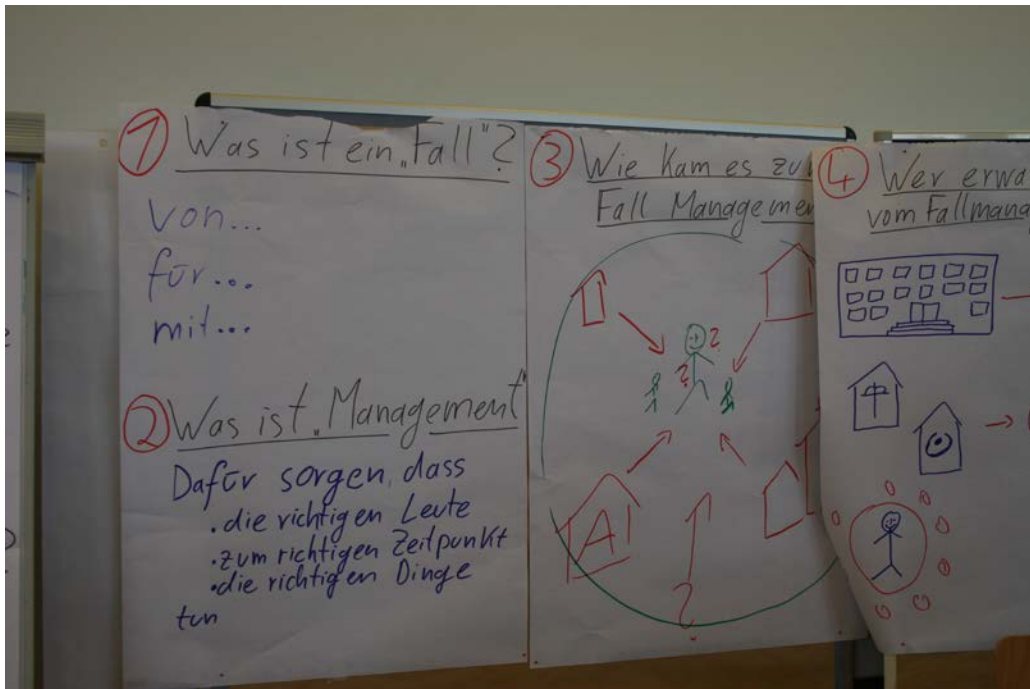 1 Was ist ein „Fall"?
von...
für...
mit...
2 Was ist „Management"
Dafür sorgen, dass
• die richtigen Leute
• zum richtigen Zeitpunkt
• die richtigen Dinge
tun
3 Wie kam es zu
Fall Managemen
?
?
A
?
4 Wer erwa
vom Fallmanag